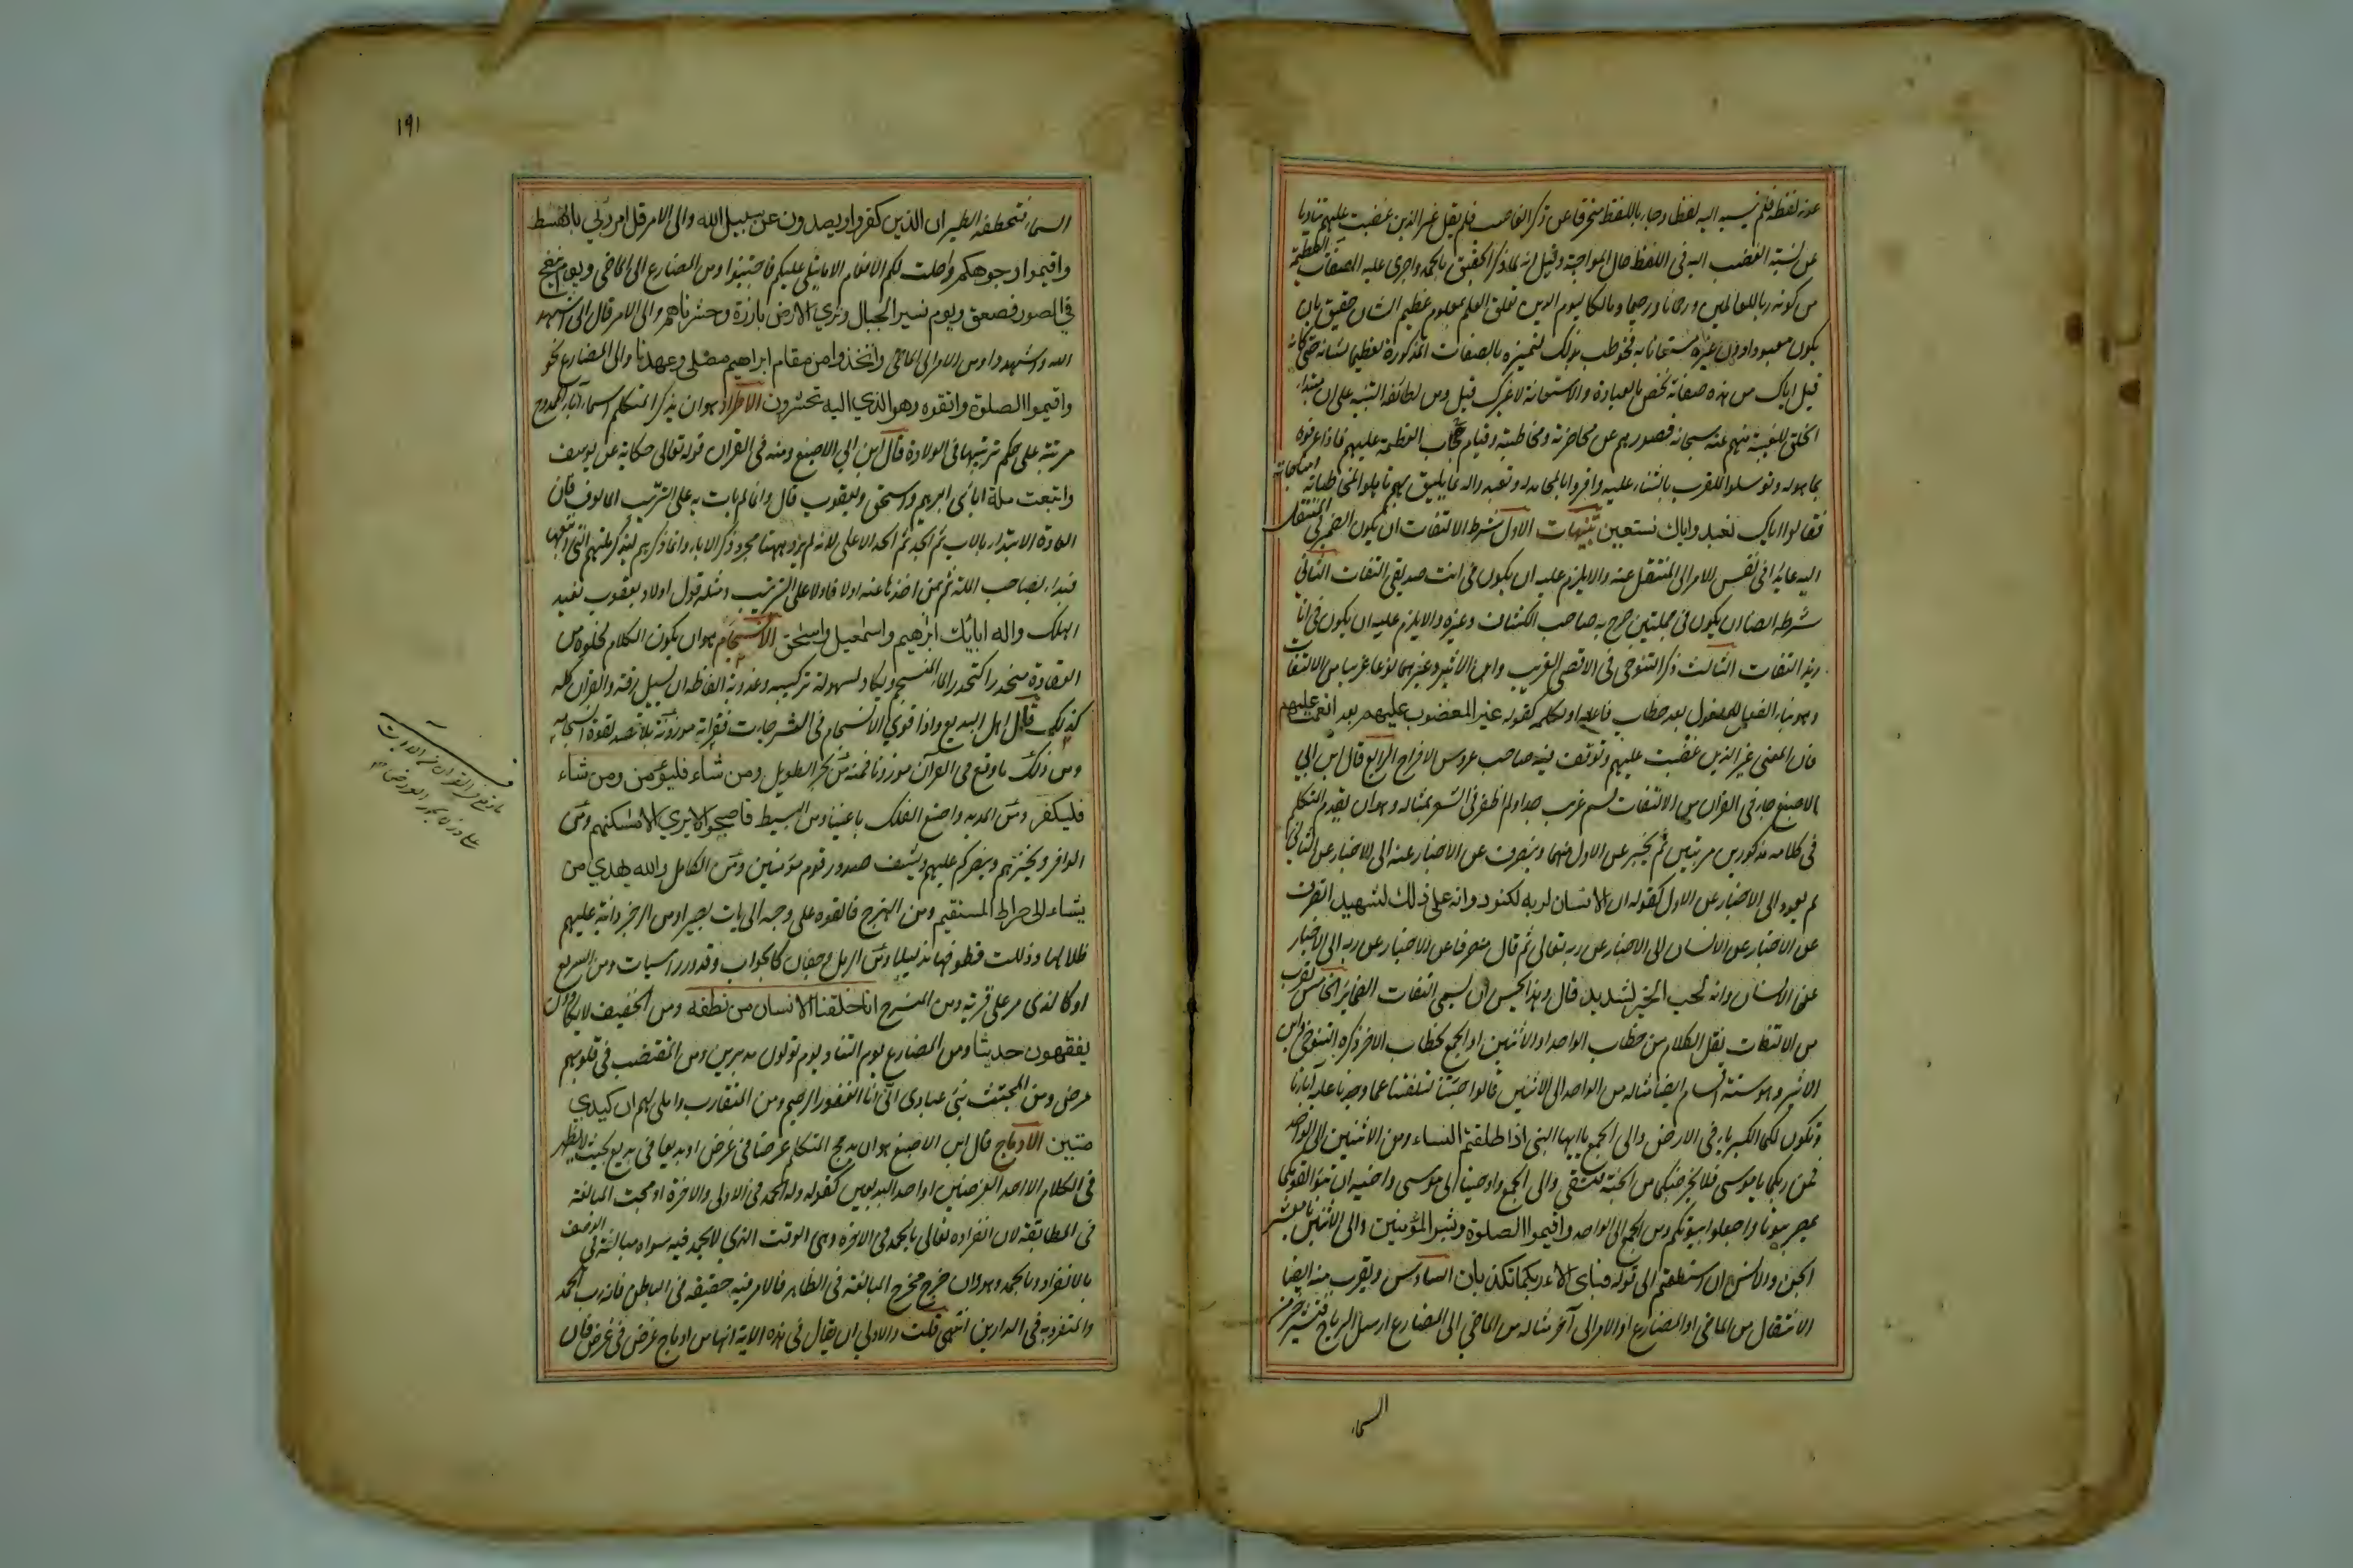 عنه لفظه فلم ينسبه اليه لفظا وجاء باللفظ منحرفا عن ذكر الغاضب فلم يقل غير الذين غضبت عليهم تفاديا
عن نسبة الغضب اليه في اللفظ حال المواجهة وقيل انه لما ذكر الحقيق بالحمد واجرى عليه الصفات العظيمة
من كونه ربا للعالمين ورحمانا ورحيما ومالكا ليوم الدين تعلق العلم بمعلوم عظيم الشان حقيق بان
يكون معبودا دون غيره مستعانا به فخوطب بذلك لتميزه بالصفات المذكورة تعظيما لشانه حتى كانه
قيل اياك من هذه صفاته نخص بالعبادة والاستعانة لا غيرك قيل ومن لطائفه التنبيه على ان مبتدا
الخلق الغيبة منهم عنه سبحانه وقصورهم عن محاضرته ومخاطبته وقيام حجاب العظمة عليهم فاذا عرفوه
بما هو له وتوسلوا للقرب بالثناء عليه واقروا بالمحامد له وتعبدوا له بما يليق بهم تاهلوا لمخاطباته ومناجاته
فقالوا اياك نعبد واياك نستعين تنبيهات الاول شرط الالتفات ان يكون الضمير في المنتقل
اليه عايدا في نفس الامر الى المنتقل عنه والا يلزم عليه ان يكون في انت صديقي التفات الثاني
شرطه ايضا ان يكون في جملتين صرح به صاحب الكشاف وغيره والا يلزم عليه ان يكون في انا
زيد التفات الثالث ذكر التنوخي في الاقصى القريب وابن الاثير وغيرهما نوعا غريبا من الالتفات
وهو بناء الفعل للمفعول بعد خطاب فاعله او تكلمه كقوله غير المغضوب عليهم بعد انعمت عليهم
فان المعنى غير الذين غضبت عليهم وتوقف فيه صاحب عروس الافراح الرابع قال ابن ابي
الاصبع جاء في القرآن من الالتفات قسم غريب جدا ولم اظفر في الشعر بمثاله وهو ان يقدم المتكلم
في كلامه مذكورين مرتبين ثم يخبر عن الاول منهما وينصرف عن الاخبار عنه الى الاخبار عن الثاني
ثم يعود الى الاخبار عن الاول كقوله ان الانسان لربه لكنود وانه على ذلك لشهيد انصرف
عن الاخبار عن الانسان الى الاخبار عن ربه تعالى ثم قال منصرفا عن الاخبار عن ربه الى الاخبار
عن الانسان وانه لحب الخير لشديد قال وهذا يحسن ان يسمى التفات الضماير الخامس يقرب
من الالتفات نقل الكلام من خطاب الواحد او الاثنين او الجمع لخطاب الاخر ذكره التنوخي وابن
الاثير وهو ستة اقسام ايضا مثاله من الواحد الى الاثنين قالوا اجئتنا لتلفتنا عما وجدنا عليه اباءنا
وتكون لكما الكبرياء في الارض والى الجمع يا ايها النبي اذا طلقتم النساء ومن الاثنين الى الواحد
فمن ربكما يا موسى فلا يخرجنكما من الجنة فتشقى والى الجمع واوحينا الى موسى واخيه ان تبوآ لقومكما
بمصر بيوتا واجعلوا بيوتكم ومن الجمع الى الواحد واقيموا الصلوة وبشر المؤمنين والى الاثنين يا معشر
الجن والانس ان استطعتم الى قوله فباي الاء ربكما تكذبان السادس ويقرب منه ايضا
الانتقال من الماضي او المضارع او الامر الى آخر مثاله من الماضي الى المضارع ارسل الرياح فتثير خر من
السماء
١٩١
السماء فتخطفه الطير ان الذين كفروا ويصدون عن سبيل الله والى الامر قل امر ربي بالقسط
واقيموا وجوهكم واحلت لكم الانعام الا ما يتلى عليكم فاجتنبوا ومن المضارع الى الماضي ويوم ينفخ
في الصور فصعق ويوم نسير الجبال وترى الارض بارزة وحشرناهم والى الامر قال اني اشهد
الله واشهدوا ومن الامر الى الماضي واتخذوا من مقام ابراهيم مصلى وعهدنا والى المضارع نحو
واقيموا الصلوة واتقوه وهو الذي اليه تحشرون الاطراد هو ان يذكر المتكلم اسماء آباء الممدوح
مرتبة على حكم ترتيبها في الولادة قال ابن ابي الاصبع ومنه في القرآن قوله تعالى حكاية عن يوسف
واتبعت ملة ابائي ابرهيم واسحق ويعقوب قال وانما لم يات به على الترتيب المالوف فان
العادة الابتداء بالاب ثم الجد ثم الجد الاعلى لانه لم يرد ههنا مجرد ذكر الاباء وانما ذكرهم ليذكر ملتهم التي اتبعها
فبدأ بصاحب الملة ثم بمن اخذها عنه اولا فاولا على الترتيب ومثله قول اولاد يعقوب نعبد
الهك واله ابائك ابراهيم واسمعيل واسحق الانسجام هو ان يكون الكلام لخلوه من
العقادة منحدرا كتحدر الماء المنسجم ويكاد لسهولة تركيبه وعذوبة الفاظه ان يسيل رقة والقرآن كله
كذلك قال اهل البديع واذا قوي الانسجام في النثر جاءت فقراته موزونة بلا قصد لقوة انسجامه
ومن ذلك ما وقع في القرآن موزونا فمنه من بحر الطويل ومن شاء فليؤمن ومن شاء
فليكفر ومن المديد واصنع الفلك باعيننا ومن البسيط فاصبحوا لا يرى الا مسكنهم ومن
الوافر ويخزهم وينصركم عليهم ويشف صدور قوم مؤمنين ومن الكامل والله يهدي من
يشاء الى صراط مستقيم ومن الهزج فالقوه على وجه ابي يات بصيرا ومن الرجز ودانية عليهم
ظلالها وذللت قطوفها تذليلا ومن الرمل وجفان كالجواب وقدور راسيات ومن السريع
او كالذي مر على قرية ومن المنسرح انا خلقنا الانسان من نطفة ومن الخفيف لا يكادون
يفقهون حديثا ومن المضارع يوم التناد يوم تولون مدبرين ومن المقتضب في قلوبهم
مرض ومن المجتث نبئ عبادي اني انا الغفور الرحيم ومن المتقارب واملي لهم ان كيدي
متين الادماج قال ابن الاصبع هو ان يدمج المتكلم غرضا في غرض او بديعا في بديع بحيث لا يظهر
في الكلام الا احد الغرضين او احد البديعين كقوله وله الحمد في الاولى والاخرة ادمجت المبالغة
في المطابقة لان انفراده تعالى بالحمد في الاخرة وهي الوقت الذي لا يحمد فيه سواه مبالغة في الوصف
بالانفراد بالحمد وهو وان خرج مخرج المبالغة في الظاهر فالامر فيه حقيقة في الباطن فانه رب الحمد
والمتفرد به في الدارين انتهى قلت والاولى ان يقال في هذه الاية انها من ادماج غرض في غرض فان
ما وقع في القرآن من الآيات
على وزن بحور العروض